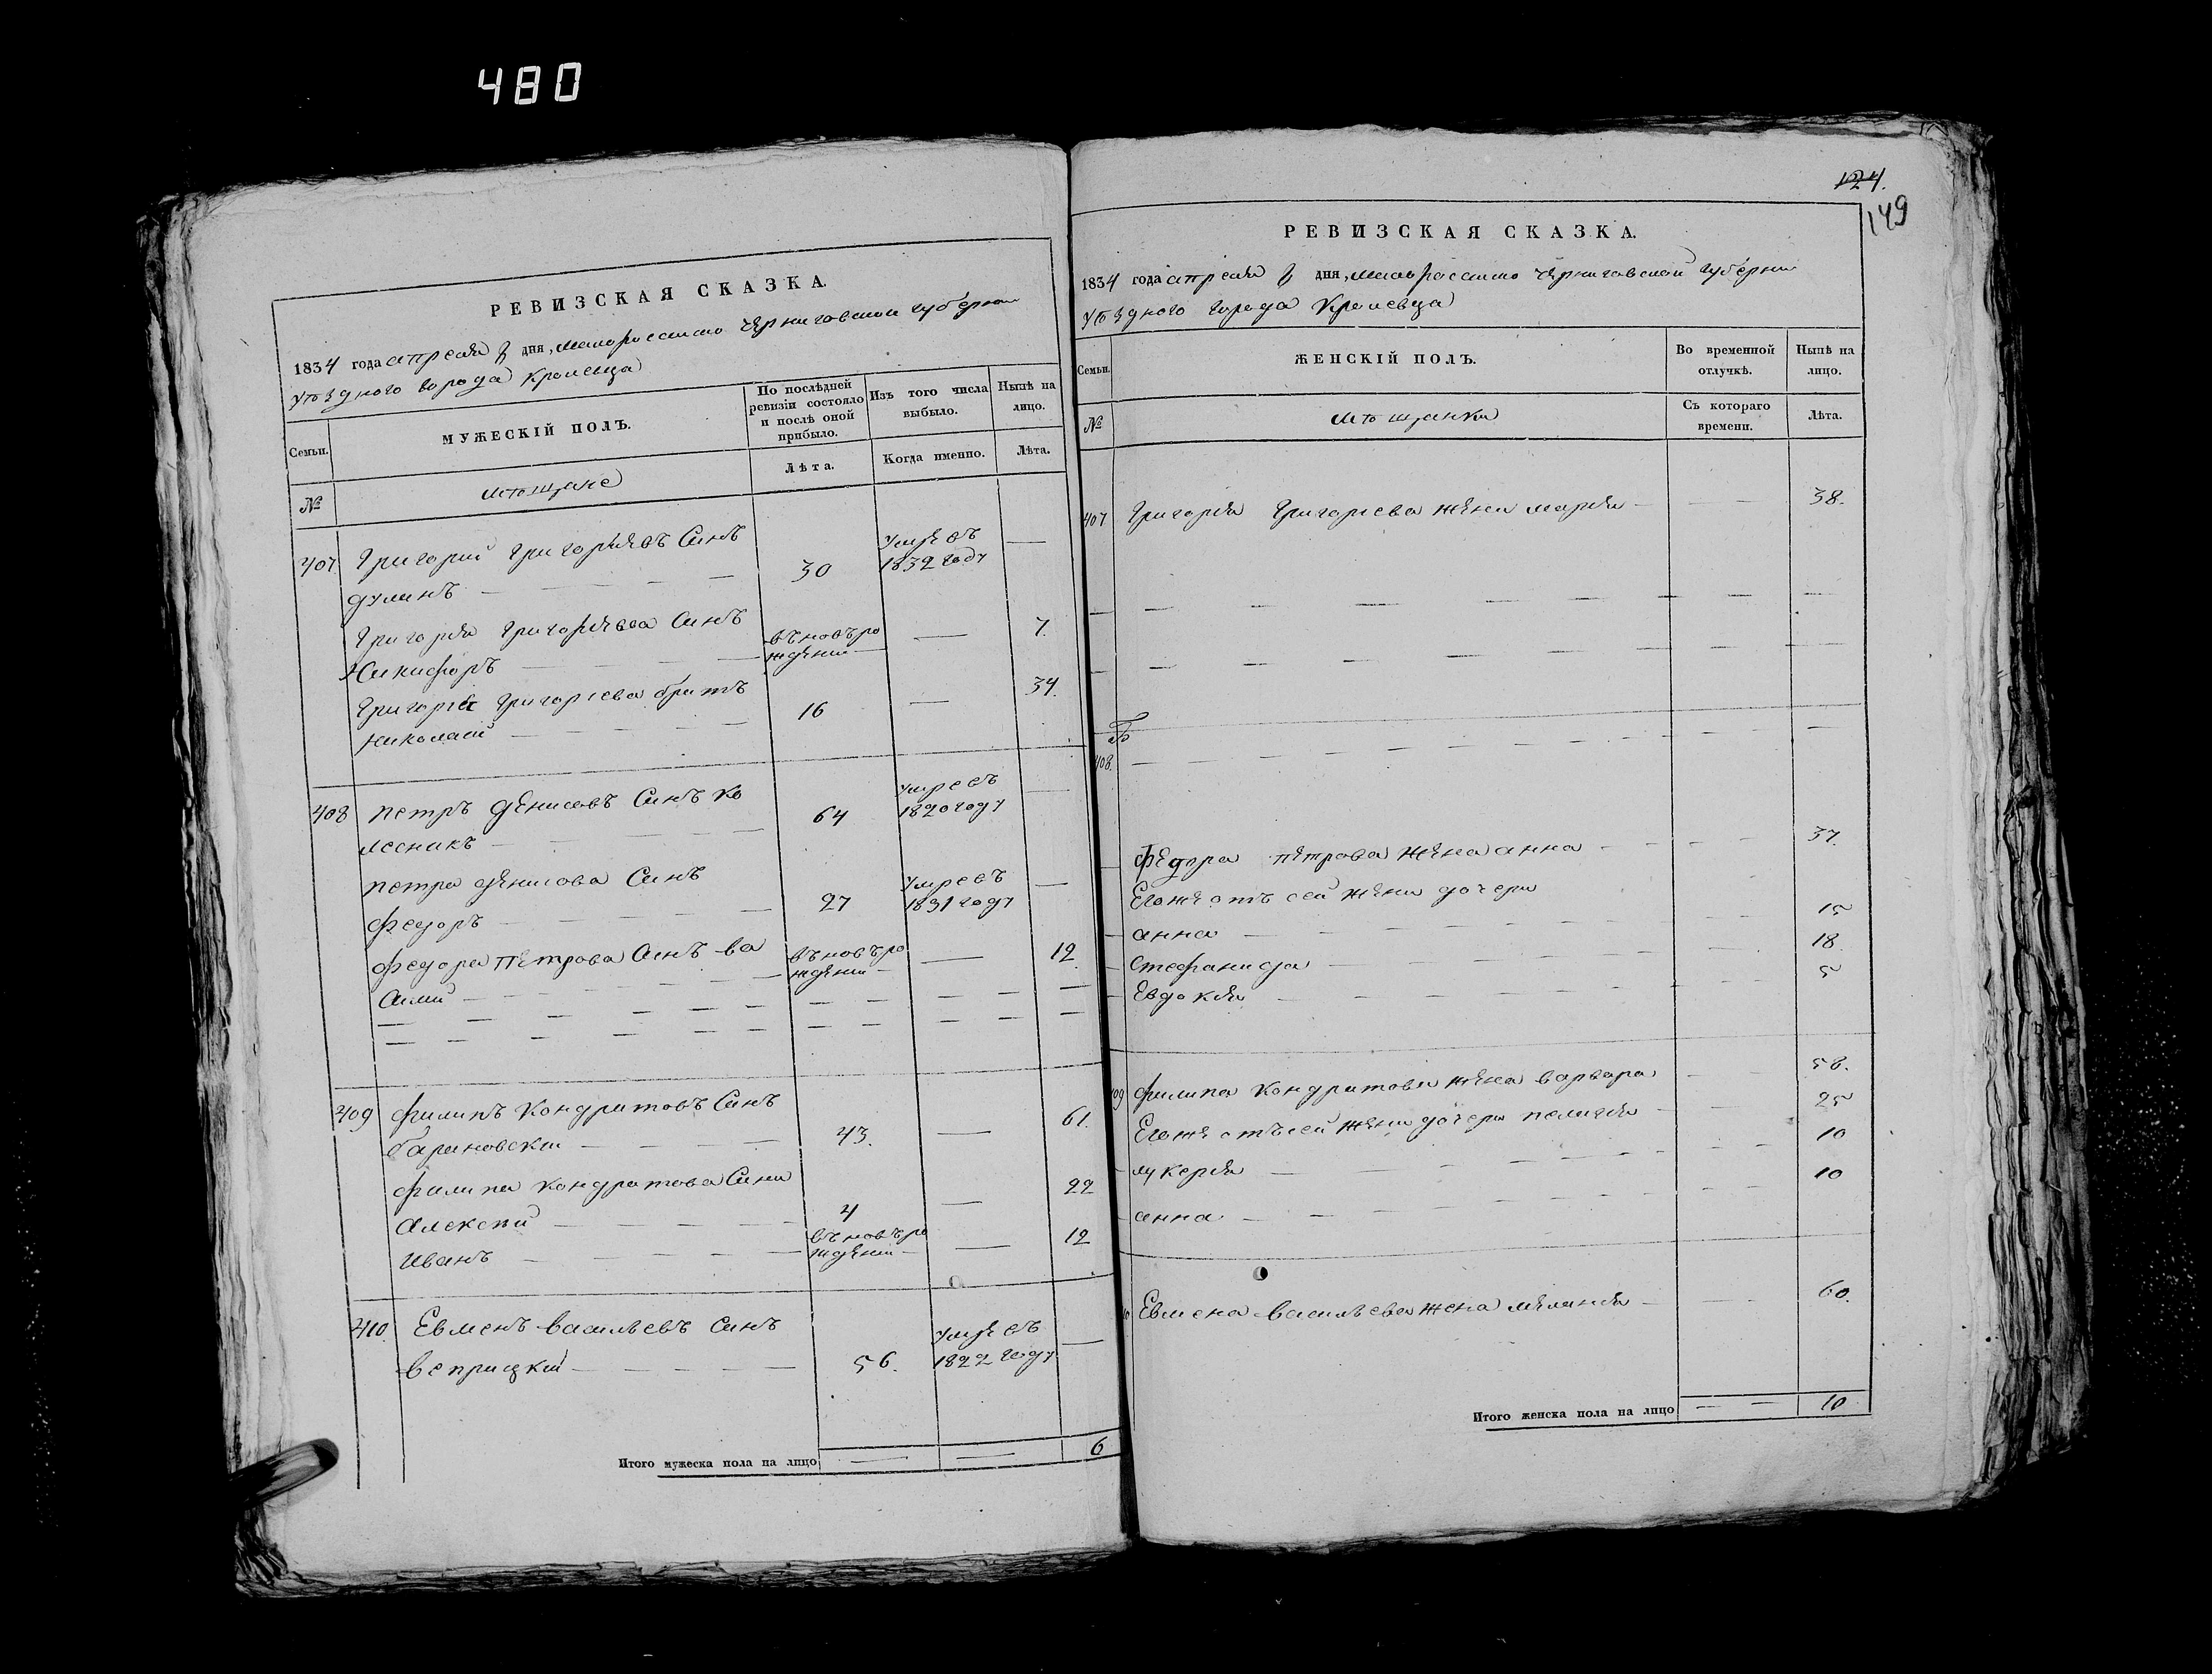 480
РЕВИЗСКАЯ СКАЗКА.
1834 года апреля дня, Малороссиско Черниговской губернии
уѣзднаго города Кролевца
Семьи.
МУЖЕСКІЙ ПОЛЪ.
По послѣдней ревизіи состояло и послѣ оной прибыло.
Изъ того числа выбыло.
Нынѣ на лицо.
Лѣта.
Когда именно.
Лѣта.
№
мѣщане
407 Григорий Григорьевъ Синъ умре въ —
дулинъ — 30 1832 году
Григорія Григорьева Синъ въновъро — 7.
Никифоръ — ждении
Григорія Григоріева братъ — 34.
Николай — 16
408 петръ денисовъ Синъ Ко умре въ —
лесникъ — 64 1820 году
петра денисова Синъ умре въ —
федоръ — 27 1831 году
федора петрова Синъ ва въновъро — 12.
силий — ждении
409 филипъ Кондратовъ Синъ 61.
барановскии — 43. —
филипа Кондратова Сини
алексей — 4 — 22
иванъ — въновъро ждении — 12
410. Евменъ васильевъ Синъ умре въ —
веприцкий — 56. 1822 году
Итого мужеска пола на лицо — — 6
124.
149
РЕВИЗСКАЯ СКАЗКА.
1834 года апреля дня, Малороссиско Черниговской губернии
уѣздного города Кролевца
Семьи.
ЖЕНСКІЙ ПОЛЪ.
Во временной отлучкѣ.
Нынѣ на лицо.
№
мѣщанки
Съ котораго времени.
Лѣта.
407 Григорія Григорієва жена марія — 38.
408.
федора петрова жена анна — 37.
Егоже отъ сей жени дочери
анна — 15
Стефанида — 18.
Евдокія — 5
409 филипа Кондратова жена варвара 58.
Егоже отъ сей жени дочери пелагія — 25
лукерія — 10
анна — 10
Евмена васильева жена меланія — 60.
Итого женска пола на лицо — — 10